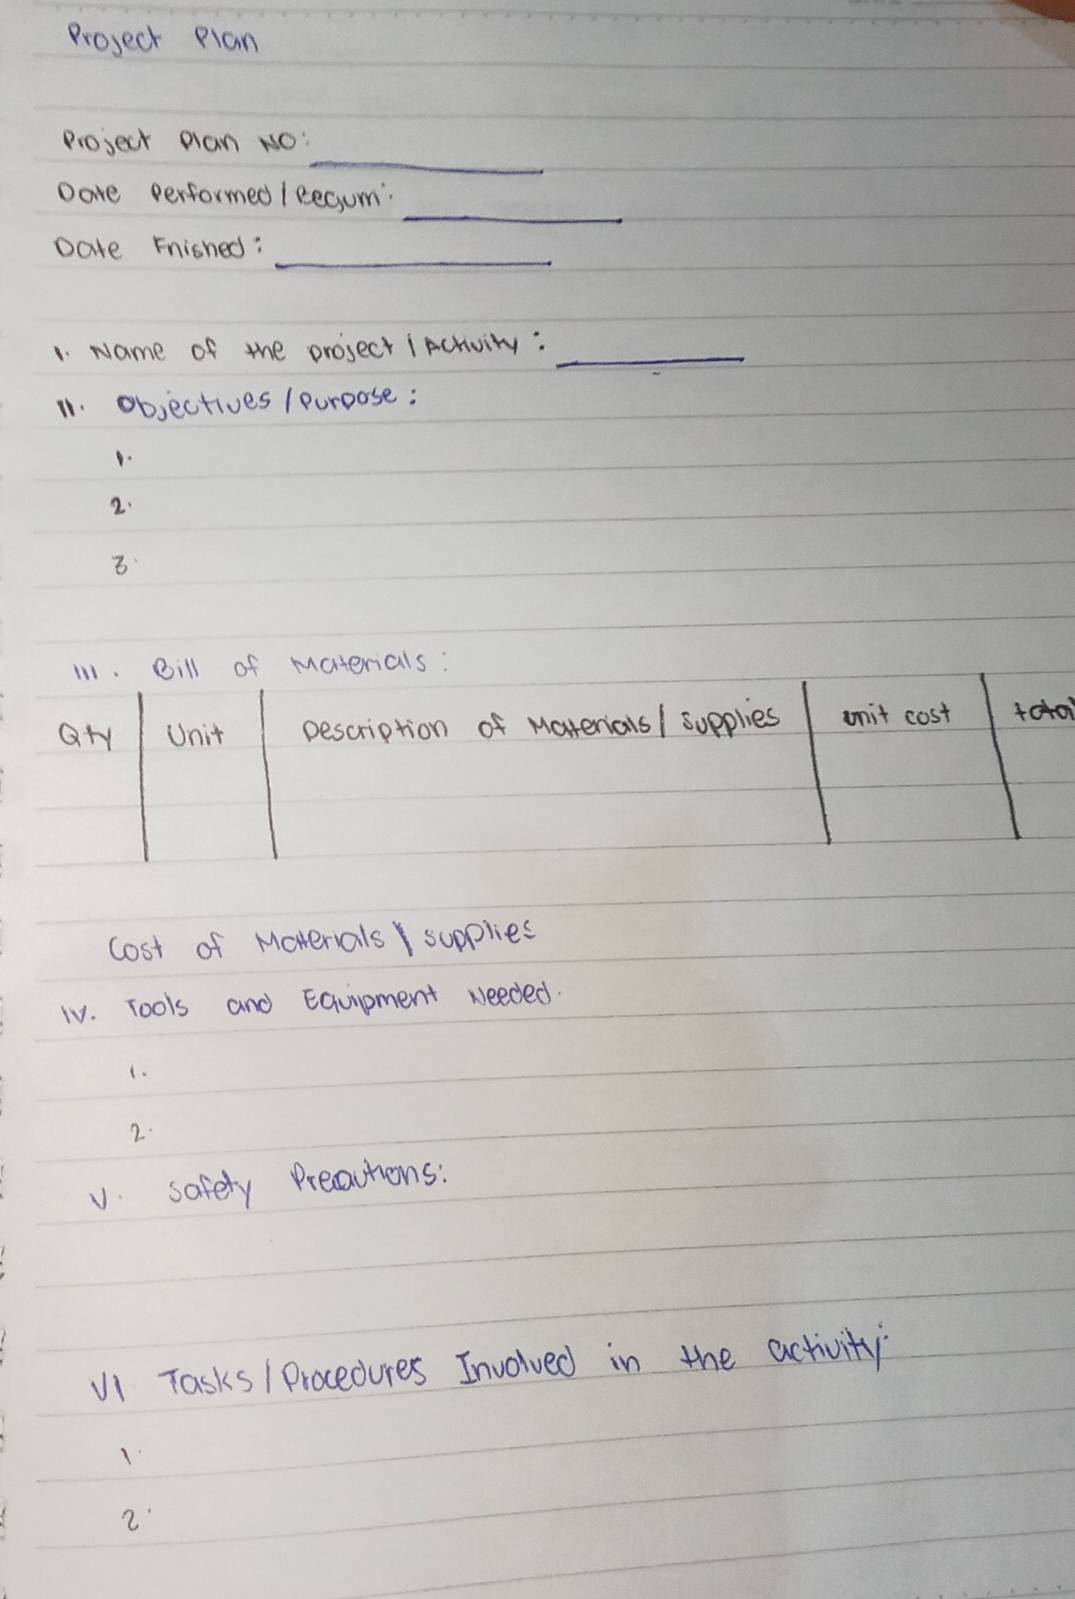 Project Plan
Project Plan No:
Date Performed/Begum:
Date Fnished:
I. Name of the project / Activity:
II. Objectives / Purpose:
1.
2.
3.
III. Bill of Materials:
Qty Unit Description of Materials/ Supplies unit cost total
Cost of Materials \ supplies
IV. Tools and Equipment Needed.
1.
2.
V. Safety Precautions:
VI Tasks / Procedures Involved in the activity:
1.
2.